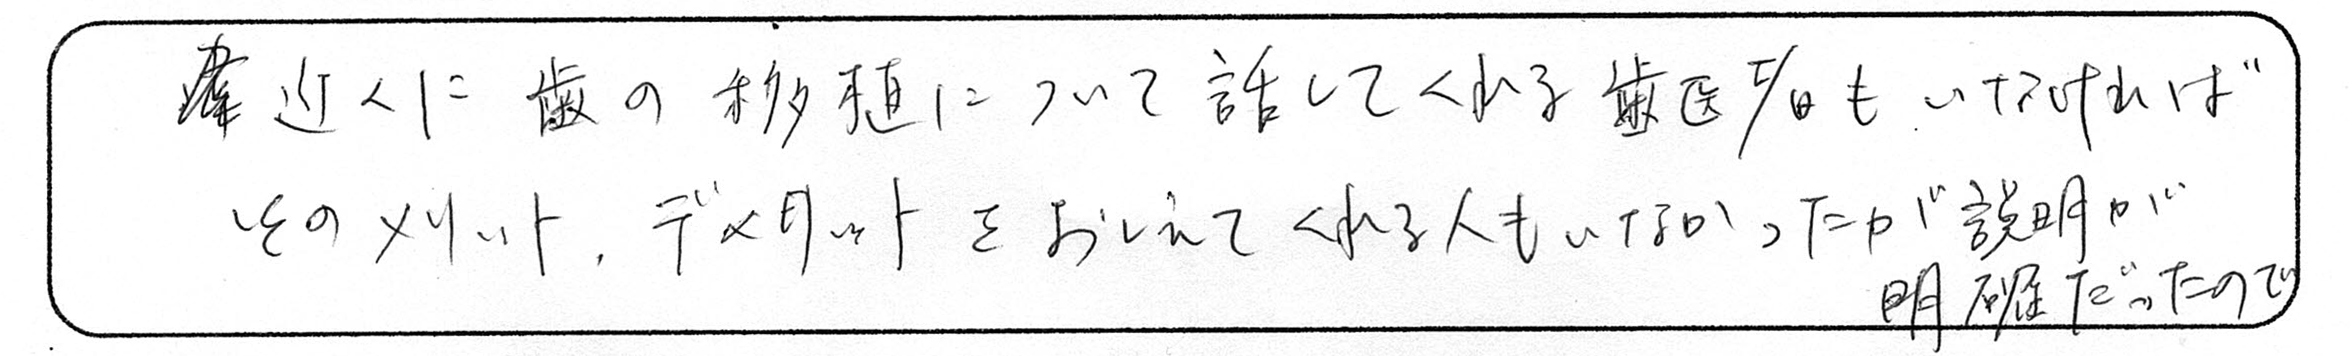 近くに歯の移植について話してくれる歯医者もいなければ
そのメリット、デメリットをおしえてくれる人もいなかったが説明が
明確だったので